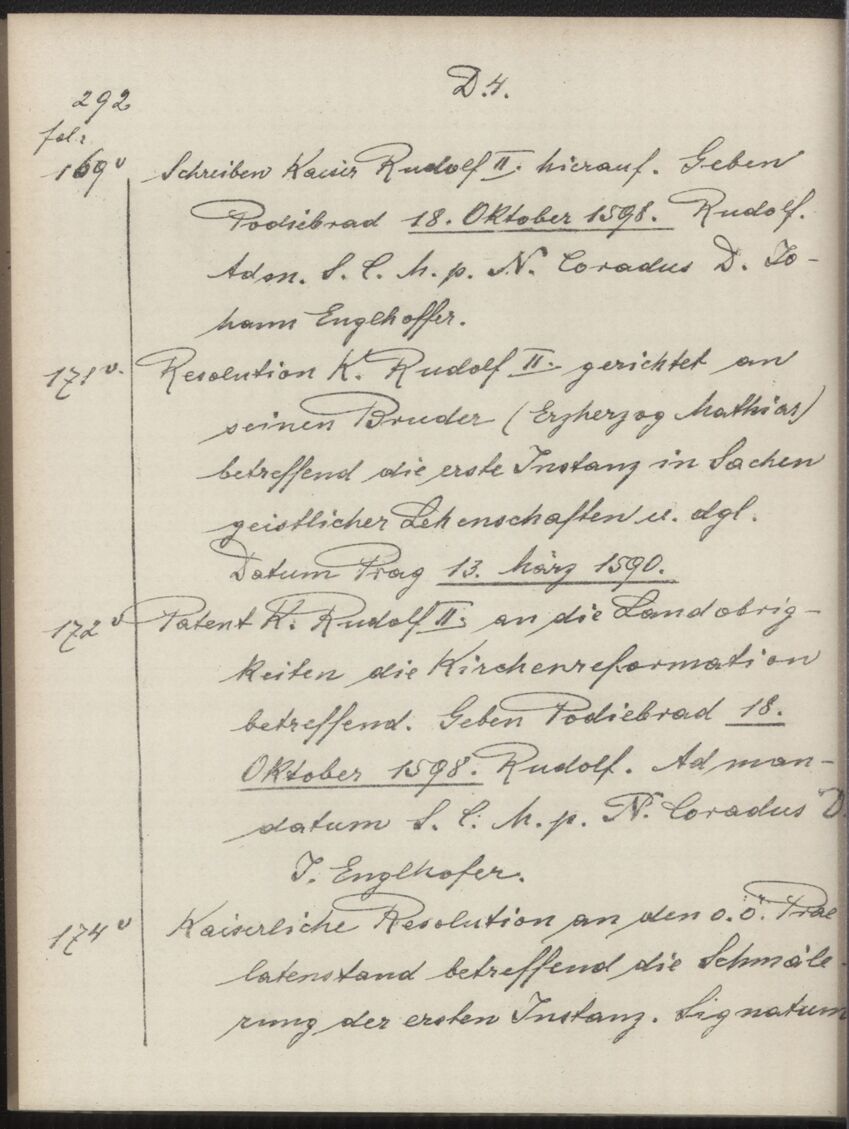 292
D.4.
fol:
169v Schreiben Kaiser Rudolf II. hierauf. Geben
Podiebrad 18. Oktober 1598. Rudolf.
Adm. S. C. M. p. N. Coradus D. Jo-
hann Englhoffer.
171v. Resolution K. Rudolf II. gerichtet an
seinen Bruder (Erzherzog Mathias)
betreffend die erste Instanz in Sachen
geistlicher Lehenschaften u. dgl.
Datum Prag 13. März 1590.
172v Patent K. Rudolf II. an die Landobrig-
keiten die Kirchenreformation
betreffend. Geben Podiebrad 18.
Oktober 1598. Rudolf. Ad man-
datum S. C. M. p. N. Coradus D.
J. Englhofer.
174v Kaiserliche Resolution an den o. ö. Prae
latenstand betreffend die Schmäle-
rung der ersten Instanz. Signatum